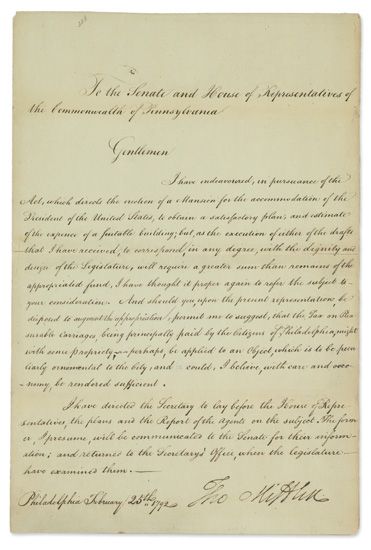 To the Senate and House of Representatives of
the Commonwealth of Pennsylvania
Gentlemen
I have endeavoured, in pursuance of the
Act, which directs the erection of a Mansion for the accommodation of the
President of the United States, to obtain a satisfactory plan, and estimate
of the expence of a suitable building; but, as the execution of either of the drafts
that I have received, to correspond, in any degree, with the dignity and
design of the Legislature, will require a greater sum than remains of the
appropriated fund, I have thought it proper again to refer the subject to
your consideration. And should you, upon the present representation, be
disposed to augment the appropriation, permit me to suggest, that the Tax on Plea
surable Carriages, being principally paid by the Citizens of Philadelphia, might
with some propriety, perhaps, be applied to an Object, which is to be pecu
liarly ornamental to the City, and could, I believe, with care and œco-
nomy, be rendered sufficient.
I have directed the Secretary to lay before the House of Repre-
sentatives, the plans and the Report of the Agents on the subject. The form
er, I presume, will be communicated to the Senate for their infor-
mation; and returned to the Secretary's Office, when the Legislature
have examined them.
Philadelphia February, 25th 1792
Tho Mifflin